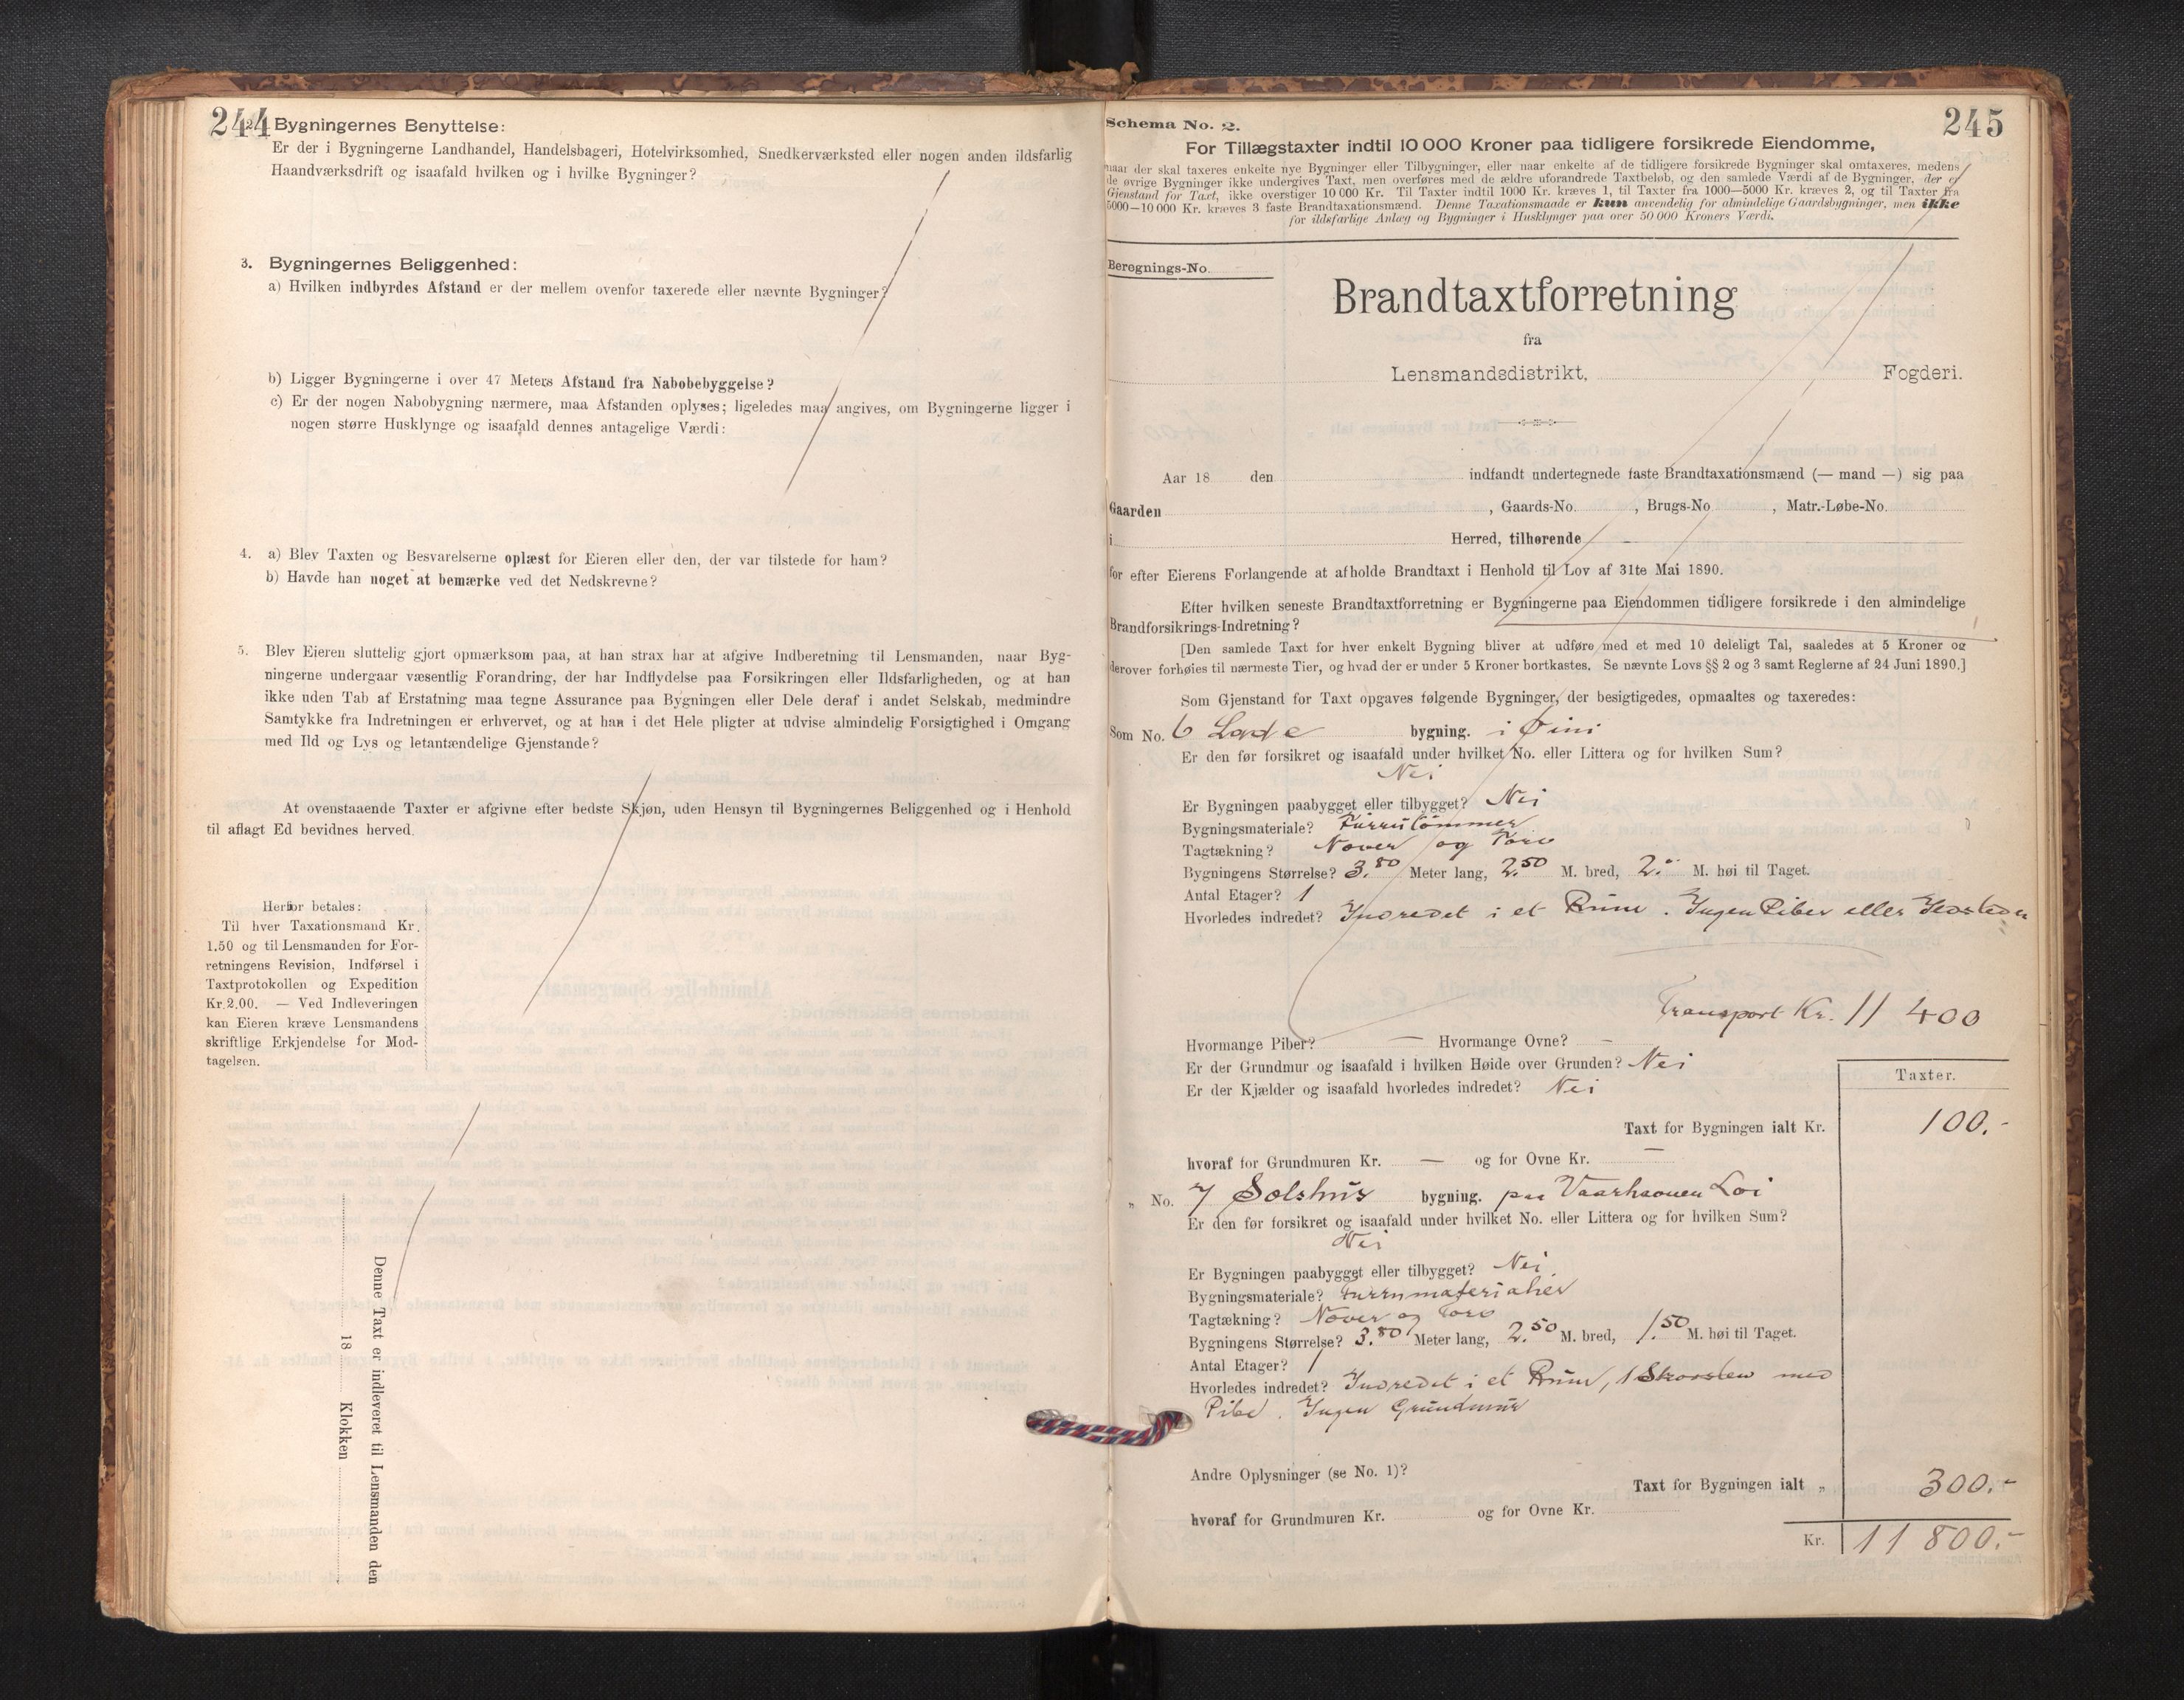 244
2. Bygningernes Benyttelse:
Er der i Bygningerne Landhandel, Handelsbageri, Hotelvirksomhed, Snedkerværksted eller nogen anden ildsfarlig
Haandværksdrift og isaafald hvilken og i hvilke Bygninger?
3. Bygningernes Beliggenhed:
a) Hvilken indbyrdes Afstand er der mellem ovenfor taxerede eller nævnte Bygninger?
b) Ligger Bygningerne i over 47 Meters Afstand fra Nabobebyggelse?
c) Er der nogen Nabobygning nærmere, maa Afstanden oplyses; ligeledes maa angives, om Bygningerne ligger i
nogen større Husklynge og isaafald dennes antagelige Værdi:
4. a) Blev Taxten og Besvarelserne oplæst for Eieren eller den, der var tilstede for ham?
b) Havde han noget at bemærke ved det Nedskrevne?
5. Blev Eieren sluttelig gjort opmærksom paa, at han strax har at afgive Indberetning til Lensmanden, naar Byg-
ningerne undergaar væsentlig Forandring, der har Indflydelse paa Forsikringen eller Ildsfarligheden, og at han
ikke uden Tab af Erstatning maa tegne Assurance paa Bygningen eller Dele deraf i andet Selskab, medmindre
Samtykke fra Indretningen er erhvervet, og at han i det Hele pligter at udvise almindelig Forsigtighed i Omgang
med Ild og Lys og letantændelige Gjenstande?
At ovenstaaende Taxter er afgivne efter bedste Skjøn, uden Hensyn til Bygningernes Beliggenhed og i Henhold
til aflagt Ed bevidnes herved.
Herfor betales:
Til hver Taxationsmand Kr.
1.50 og til Lensmanden for For-
retningens Revision, Indførsel i
Taxtprotokollen og Expedition
Kr. 2.00. — Ved Indleveringen
kan Eieren kræve Lensmandens
skriftlige Erkjendelse for Mod-
tagelsen.
Denne Taxt er indleveret til Lensmanden den
18 Klokken
245
Schema No. 2.
For Tillægstaxter indtil 10 000 Kroner paa tidligere forsikrede Eiendomme,
naar der skal taxeres enkelte nye Bygninger eller Tilbygninger, eller naar enkelte af de tidligere forsikrede Bygninger skal omtaxeres, medens
de øvrige Bygninger ikke undergives Taxt, men overføres med de ældre uforandrede Taxtbeløb, og den samlede Værdi af de Bygninger, der er
Gjenstand for Taxt, ikke overstiger 10 000 Kr. Til Taxter indtil 1000 Kr. kræves 1, til Taxter fra 1000—5000 Kr. kræves 2, og til Taxter fra
5000—10 000 Kr. kræves 3 faste Brandtaxationsmænd. Denne Taxationsmaade er kun anvendelig for almindelige Gaardsbygninger, men ikke
for ildsfarlige Anlæg og Bygninger i Husklynger paa over 50 000 Kroners Værdi.
Beregnings-No.
Brandtaxtforretning
fra
Lensmandsdistrikt, Fogderi.
Aar 18 den indfandt undertegnede faste Brandtaxationsmænd (— mand —) sig paa
Gaarden , Gaards-No. , Brugs-No , Matr.-Løbe-No.
i Herred, tilhørende
for efter Eierens Forlangende at afholde Brandtaxt i Henhold til Lov af 31te Mai 1890.
Efter hvilken seneste Brandtaxtforretning er Bygningerne paa Eiendommen tidligere forsikrede i den almindelige
Brandforsikrings-Indretning?
[Den samlede Taxt for hver enkelt Bygning bliver at udføre med et med 10 deleligt Tal, saaledes at 5 Kroner og
derover forhøies til nærmeste Tier, og hvad der er under 5 Kroner bortkastes. Se nævnte Lovs §§ 2 og 3 samt Reglerne af 24 Juni 1890.]
Som Gjenstand for Taxt opgaves følgende Bygninger, der besigtigedes, opmaaltes og taxeredes:
Som No. 6 Lade bygning. i Øini
Er den før forsikret og isaafald under hvilket No. eller Littera og for hvilken Sum?
Nei
Er Bygningen paabygget eller tilbygget? Nei
Bygningsmateriale? Furrutømmer
Tagtækning? Næver og Torv
Bygningens Størrelse? 3.80 Meter lang, 2.50 M. bred, 2." M. høi til Taget.
Antal Etager? 1
Hvorledes indredet? Indredet i et Rum. Ingen Piber eller Ildsteder
Transport Kr. 11 400
Hvormange Piber? — Hvormange Ovne? —
Er der Grundmur og isaafald i hvilken Høide over Grunden? Nei
Er der Kjælder og isaafald hvorledes indredet? Nei
Taxter.
Taxt for Bygningen ialt Kr. 100.-
hvoraf for Grundmuren Kr. — og for Ovne Kr. —
„ No. 7 Sælshus bygning. paa Loi
Er den før forsikret og isaafald under hvilket No. eller Littera og for hvilken Sum?
Nei
Er Bygningen paabygget eller tilbygget? Nei
Bygningsmateriale? Furrumaterialier
Tagtækning? Næver og Torv
Bygningens Størrelse? 3.80 Meter lang, 2.50 M. bred, 1.50 M. høi til Taget.
Antal Etager? 1
Hvorledes indredet? Indredet i et Rum, 1 Skorsten med
Pibe. Ingen Grundmur
Andre Oplysninger (se No. 1)?
Taxt for Bygningen ialt „ 300.-
hvoraf for Grundmuren Kr. og for Ovne Kr.
Kr. 11 800.-